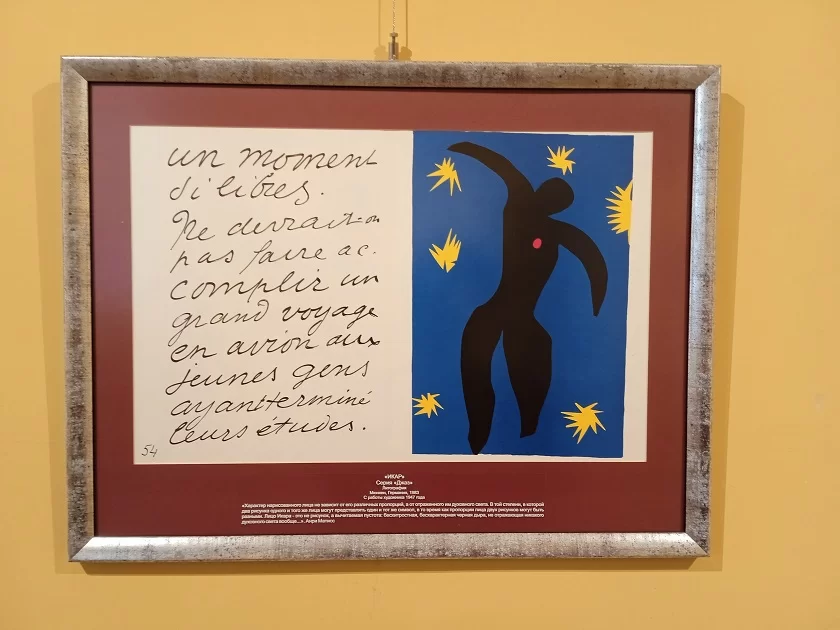 un moment
si libres.
Ne devrait-on
pas faire ac-
complir un
grand voyage
en avion aux
jeunes gens
ayant terminé
leurs études.
54
«ИКАР»
Серия «Джаз»
Литография
Мюнхен, Германия, 1983
С работы художника 1947 года
«Характер нарисованного лица не зависит от его различных пропорций, а от отраженного им духовного света. В той степени, в которой
два рисунка одного и того же лица могут представлять один и тот же символ, в то время как пропорции лица двух рисунков могут быть
разными. Лицо Икара - это не рисунок, а вычитаемая пустота: бесхитростная, бесхарактерная черная дыра, не отражающая никакого
духовного света вообще...», Анри Матисс